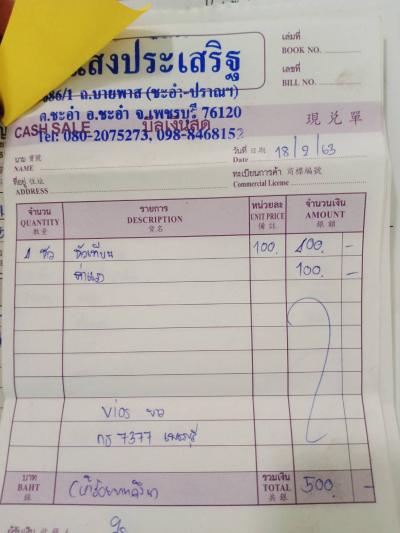 แสงประเสริฐ
เล่มที่
BOOK NO.
เลขที่
BILL NO.
686/1 ถ.บายพาส (ชะอำ-ปราณฯ)
ต.ชะอำ อ.ชะอำ จ.เพชรบุรี 76120
CASH SALE บิลเงินสด 現兌單
Tel: 080-2075273, 098-8468152
นาม 寶號
NAME
วันที่ 日期
Date 18/2/63
ที่อยู่ 住址
ADDRESS
ทะเบียนการค้า 商標編號
Commercial License
จำนวน รายการ หน่วยละ จำนวนเงิน
QUANTITY DESCRIPTION UNIT PRICE AMOUNT
數量 貨名 備註 銀額
4 หัวเทียน 100. 400. -
ค่าแรง 100. -
Vios
กธ 7377 เพชรบุรี
บาท
BAHT
銖
(ห้าร้อยบาทถ้วน)
รวมเงิน
TOTAL 500 -
共銀